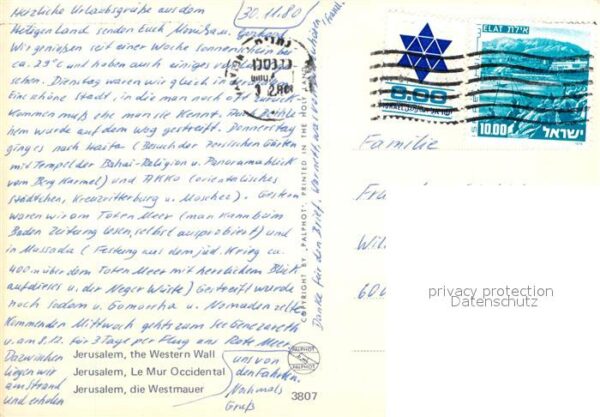 30.11.80
Herzliche Urlaubsgrüße aus dem
Heiligen Land senden Euch Monika u.
Wir genießen seit einer Woche Sonnenschein bei
ca. 23°C und haben auch einiges
sehen. Dienstag waren wir gleich in
Eine schöne Stadt, in die man noch oft zurück-
kommen muß ehe man sie kennt.
hem wurde auf dem Weg gestreift. Donnerstag
ging es nach Haifa (Besuch der Persischen Gärten
mit Tempel der Bahai-Religion u. Panoramablick
vom Berg Karmel) und AKKO (orientalisches
Städtchen, Kreuzritterburg u. Moschee). Gestern
waren wir am Toten Meer (man kann beim
Baden Zeitung lesen, selbst ausprobiert) und
in Massada (Festung aus dem jüd. Krieg ca.
400 m über dem Toten Meer mit herrlichem Blick
auf dieses u. der Negev Wüste) Gestreift wurde
noch Sodom u. Gomorrha u. Nomadenzelte
Kommenden Mittwoch gehts zum See Genezareth
u. am 8.12. für 3 Tage per Flug ans Rote Meer
Dazwischen
liegen wir
am Strand
und erholen
uns von
den Fahrten.
Nochmals
Gruß
Danke für den Brief.
Jerusalem, the Western Wall
Jerusalem, Le Mur Occidental
Jerusalem, die Westmauer
3807
PALPHOT
COPYRIGHT BY "PALPHOT" PRINTED IN THE HOLY LAND
8.00
ELAT אילת
10.00
ישראל
Familie
privacy protection
Datenschutz